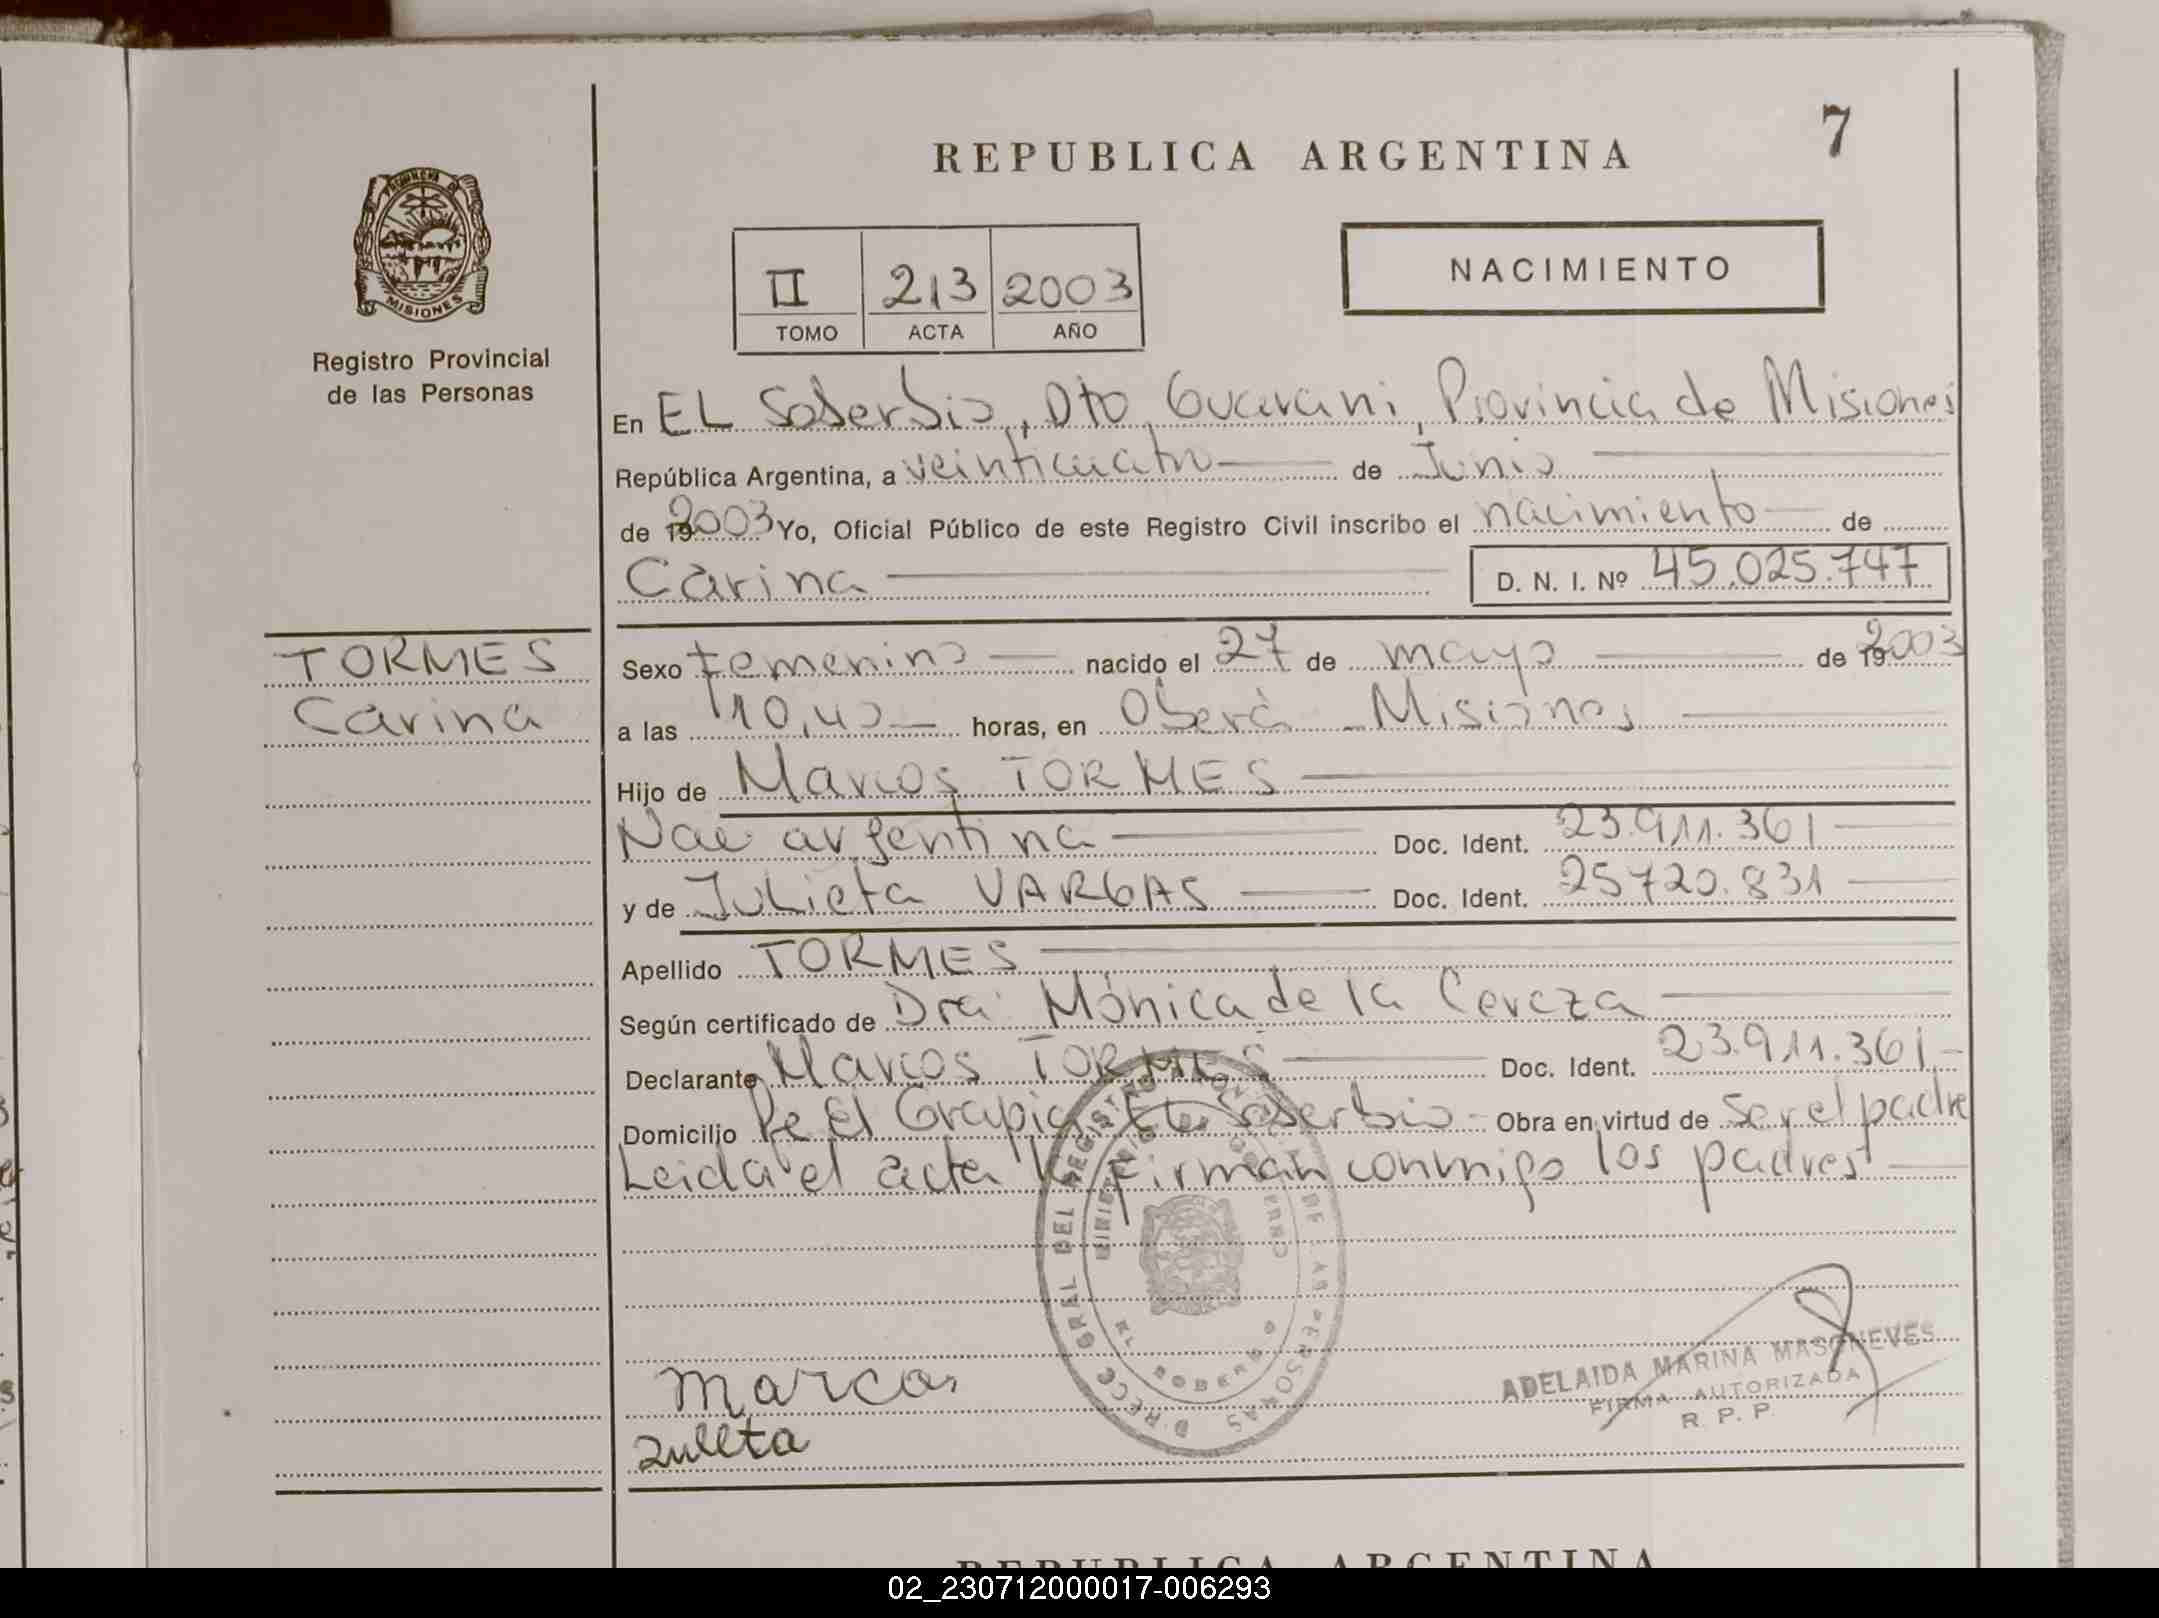 7
REPUBLICA ARGENTINA
PROVINCIA DE
MISIONES
Registro Provincial
de las Personas
II 213 2003
TOMO ACTA AÑO
NACIMIENTO
En EL Soberbio, Dto Guarani, Provincia de Misiones
República Argentina, a veinticuatro de Junio
de 2003 Yo, Oficial Público de este Registro Civil inscribo el nacimiento de
Carina D. N. I. Nº 45.025.747
TORMES
Carina
Sexo femenino nacido el 27 de mayo de 2003
a las 10,40 horas, en Oberá - Misiones
Hijo de Marcos TORMES
Nac argentina Doc. Ident. 23.911.361
y de Julieta VARGAS Doc. Ident. 25720.831
Apellido TORMES
Según certificado de Dra: Mónica de la Cereza
Declarante Marcos TORMES Doc. Ident. 23.911.361.-
Domicilio Pe El Grapia El Soberbio - Obra en virtud de ser el padre
Leida el acta la firman conmigo los padres
DIRECC GRAL DEL REGISTRO DE LAS PERSONAS
Marcos
Zulleta
ADELAIDA MARINA MASGNEVES
FIRMA AUTORIZADA
R. P. P.
REPUBLICA ARGENTINA
02_230712000017-006293